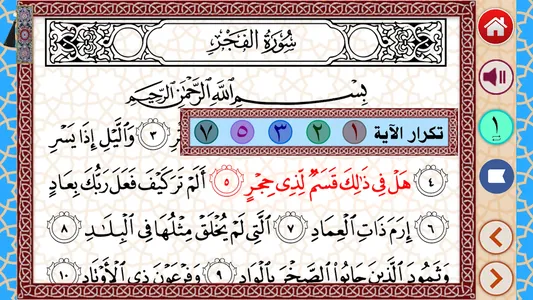 سُورَةُ الفَجْرِ
بِسْمِ اللَّهِ الرَّحْمَٰنِ الرَّحِيمِ
تكرار الآية ١ ٢ ٣ ٥ ٧
١
٣ وَالَّيْلِ إِذَا يَسْرِ
٤ هَلْ فِي ذَٰلِكَ قَسَمٌ لِّذِي حِجْرٍ ٥ أَلَمْ تَرَ كَيْفَ فَعَلَ رَبُّكَ بِعَادٍ
٦ إِرَمَ ذَاتِ الْعِمَادِ ٧ الَّتِي لَمْ يُخْلَقْ مِثْلُهَا فِي الْبِلَٰدِ ٨
وَثَمُودَ الَّذِينَ جَابُوا الصَّخْرَ بِالْوَادِ ٩ وَفِرْعَوْنَ ذِي الْأَوْتَادِ ١٠